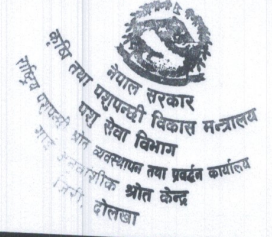 नेपाल सरकार
कृषि तथा पशुपन्छी विकास मन्त्रालय
पशु सेवा विभाग
राष्ट्रिय पशुपन्छी श्रोत व्यवस्थापन तथा प्रवर्द्धन कार्यालय
श्रोत केन्द्र
जिरी, दोलखा